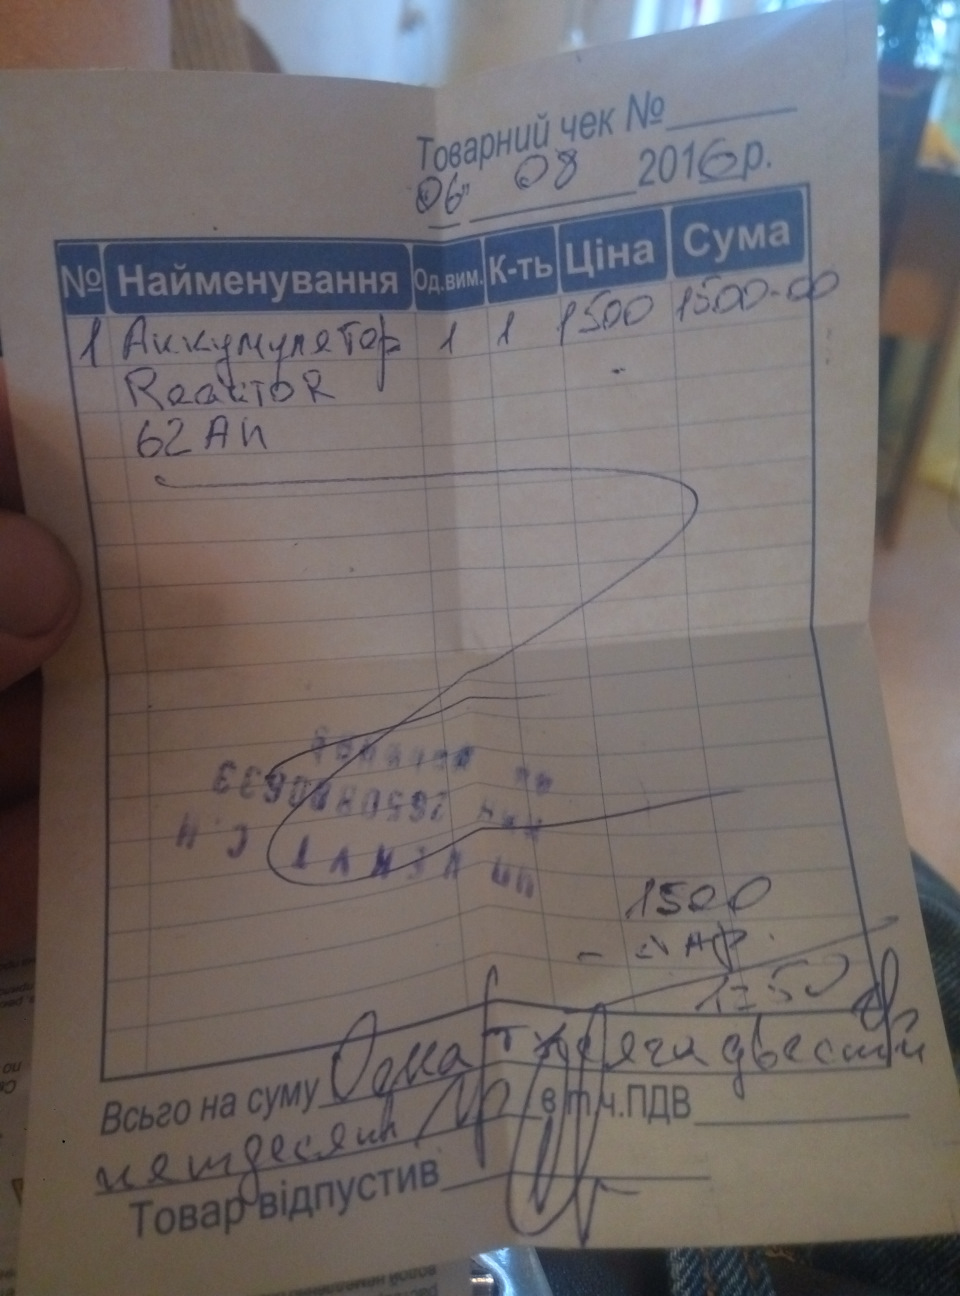 Товарний чек №
"06" 08 2016р.
№ Найменування Од.вим. К-ть Ціна Сума
1 Аккумулятор 1 1 1500 1500-00
ReactoR
62 Ah
1500
1250
Всього на суму Одна тысяча двести
пятдесят в т.ч.ПДВ
Товар відпустив